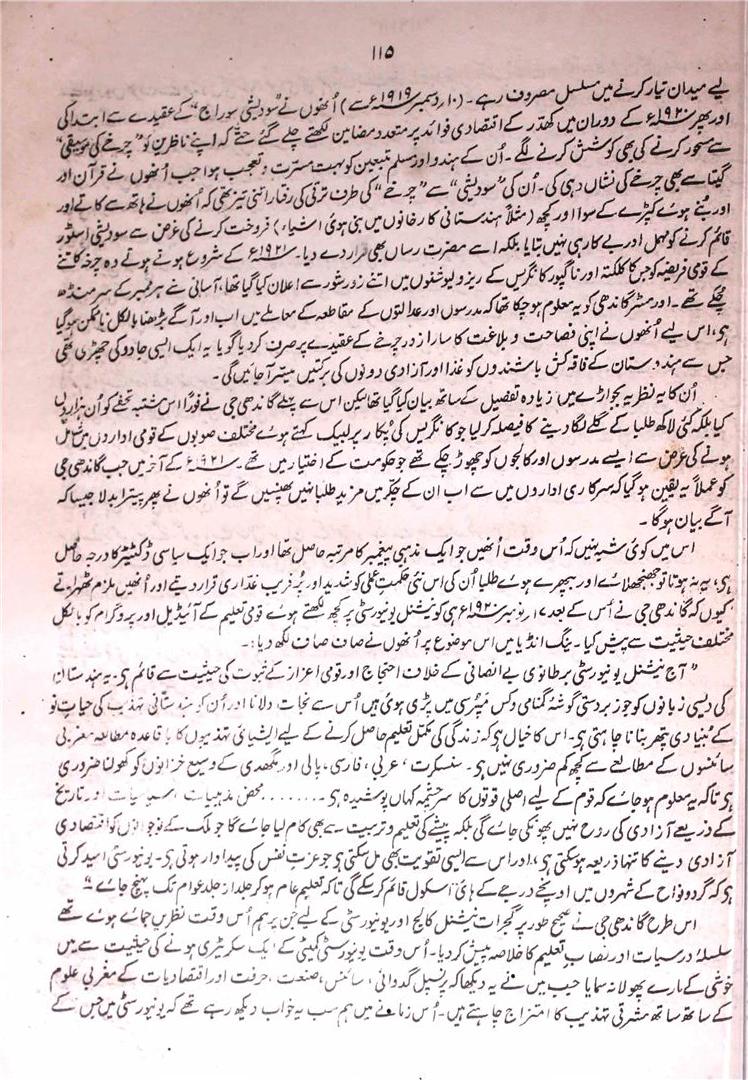 ۱۱۵
لیے میدان تیار کرنے میں مسلسل مصروف رہے۔ (۱۰ردسمبر ۱۹۱۹ء سے) اُنھوں نے "سودیشی سوراج" کے عقیدے سے ابتدا کی
اور پھر ۱۹۲۰ء کے دوران میں کھدّر کے اقتصادی فوائد پر متعدد مضامین لکھتے چلے گئے حتّٰی کہ اپنے ناظرین کو "چرخے کی موسیقی"
سے مسحور کرنے کی بھی کوشش کرنے لگے۔ اُن کے ہندو اور مسلم متبعین کو بہت مسرّت و تعجب ہوا جب اُنھوں نے قرآن اور
گیتا سے بھی چرخے کی نشاں دہی کی۔ اُن کی "سودیشی" سے "چرخے" کی طرف ترقی کی رفتار اتنی تیز تھی کہ اُنھوں نے ہاتھ سے کاتے اور
اور بُنے ہوے کپڑے کے سوا اور کچھ (مثلاً ہندستانی کارخانوں میں بنی ہوئی اشیاء) فروخت کرنے کی غرض سے سودیشی اسٹور
قائم کرنے کو مہمل اور بے کار ہی نہیں بتایا بلکہ اسے مضرت رساں بھی قرار دے دیا۔ ۱۹۲۱ء کے شروع ہونے ہوتے وہ چرخہ کاتنے
کے قومی فریضہ کو جس کا کلکتہ اور ناگپور کانگریس کے ریزولیوشنوں میں اتنے زور شور سے اعلان کیا گیا تھا، آسانی سے ہر ممبر کے سر منڈھ
چُکے تھے۔ اور مسٹر گاندھی کو یہ معلوم ہو چکا تھا کہ مدرسوں اور عدالتوں کے مقاطعہ کے معاملے میں اب اور آگے بڑھنا بالکل ناممکن ہو گیا
ہی، اس لیے اُنھوں نے اپنی فصاحت و بلاغت کا سارا زور چرخے کے عقیدے پر صرف کر دیا گویا یہ ایک ایسی جادو کی چھڑی تھی
جس سے ہندستان کے فاقہ کش باشندوں کو غذا اور آزادی دونوں کی برکتیں میسّر آجائیں گی۔
اُن کا یہ نظریہ بجواڑے میں زیادہ تفصیل کے ساتھ بیان کیا گیا تھا لیکن اس سے پہلے گاندھی جی نے فوراً اس مشتبہ تحفے کو اُن ہزار ہا
کیا بلکہ کئی لاکھ طلبا کے گلے لگا دینے کا فیصلہ کر لیا جو کانگریس کی پُکار پر لبیک کہتے ہوے مختلف صوبوں کے قومی اداروں میں شامل
ہونے کی غرض سے ایسے مدرسوں اور کالجوں کو چھوڑ چکے تھے جو حکومت کے اختیار میں تھے۔ ۱۹۲۱ء کے آخر میں جب گاندھی جی
کو عملاً یہ یقین ہو گیا کہ سرکاری اداروں میں سے اب ان کے چکر میں مزید طلبا نہیں پھنسیں گے تو اُنھوں نے پھر پینترا بدلا جیسا کہ
آگے بیان ہوگا۔
اس میں کوئی شبہ نہیں کہ اُس وقت اُنھیں جو ایک مذہبی پیغمبر کا مرتبہ حاصل تھا اور اب جو ایک سیاسی ڈکٹیٹر کا درجہ حاصل
ہی، یہ نہ ہوتا تو جھنجھلائے اور بپھرے ہوے طلبا اُن کی اس نئی حکمتِ عملی کو شدید اور پُر فریب غدّاری قرار دیتے اور اُنھیں ملزم ٹھہراتے
کیوں کہ گاندھی جی نے اُس کے بعد ۱۷ر نومبر ۱۹۲۰ء ہی کو نیشنل یونیورسٹی پر کچھ لکھتے ہوے قومی تعلیم کے آئیڈیل اور پروگرام کو بالکل
مختلف حیثیت سے پیش کیا۔ ینگ انڈیا میں اس موضوع پر اُنھوں نے صاف صاف لکھ دیا:۔
"آج نیشنل یونیورسٹی برطانوی بے انصافی کے خلاف احتجاج اور قومی اعزاز کے ثبوت کی حیثیت سے قائم ہی۔ یہ ہندستان
کی دیسی زبانوں کو جو زبردستی گوشۂ گمنامی و کس مپُرسی میں پڑی ہوئی ہیں اُس سے نجات دلانا اور اُن کو ہندستانی تہذیب کی حیاتِ نو
کے بُنیادی پتھر بنانا چاہتی ہی۔ اس کا خیال ہی کہ زندگی کی مکمّل تعلیم حاصل کرنے کے لیے ایشیائی تہذیبوں کا باقاعدہ مطالعہ مغربی
سائنسوں کے مطالعے سے کچھ کم ضروری نہیں ہی۔ سنسکرت، عربی، فارسی، پالی اور مگھدی کے وسیع خزانوں کو کھولنا ضروری
ہی تاکہ یہ معلوم ہوجائے کہ قوم کے لیے اصلی قوتوں کا سرچشمہ کہاں پوشیدہ ہی۔ ........ محض مذہبیات، سیاسیات اور تاریخ
کے ذریعے آزادی کی روح نہیں پھونکی جائے گی بلکہ پیشے کی تعلیم و تربیت سے بھی کام لیا جائے گا جو ملک کے نوجوانوں کو اقتصادی
آزادی دینے کا تنہا ذریعہ ہو سکتی ہی، اور اس سے ایسی تقویت بھی مل سکتی ہی جو عزتِ نفس کی پیداوار ہوتی ہی۔ یونیورسٹی امید کرتی
ہی کہ گرد و نواح کے شہروں میں اونچے درجے کے ہائی اسکول قائم کر سکے گی تاکہ تعلیم عام ہو کر جلد از جلد عوام تک پہنچ جائے۔"
اس طرح گاندھی جی نے صحیح طور پر گجرات نیشنل کالج اور یونیورسٹی کے لیے جن پر ہم اُس وقت نظریں جمائے ہوے تھے
سلسلۂ درسیات اور نصابِ تعلیم کا خلاصہ پیش کر دیا۔ اُس وقت یونیورسٹی کمیٹی کے ایک سکریٹری ہونے کی حیثیت سے میں
خوشی کے مارے پھولا نہ سمایا جب میں نے یہ دیکھا کہ پرنسپل گدوانی، سائنس، صنعت، حرفت اور اقتصادیات کے مغربی علوم
کے ساتھ ساتھ مشرقی تہذیب کا امتزاج چاہتے ہیں۔ اُس زمانے میں ہم سب یہ خواب دیکھ رہے تھے کہ یونیورسٹی میں جس کے